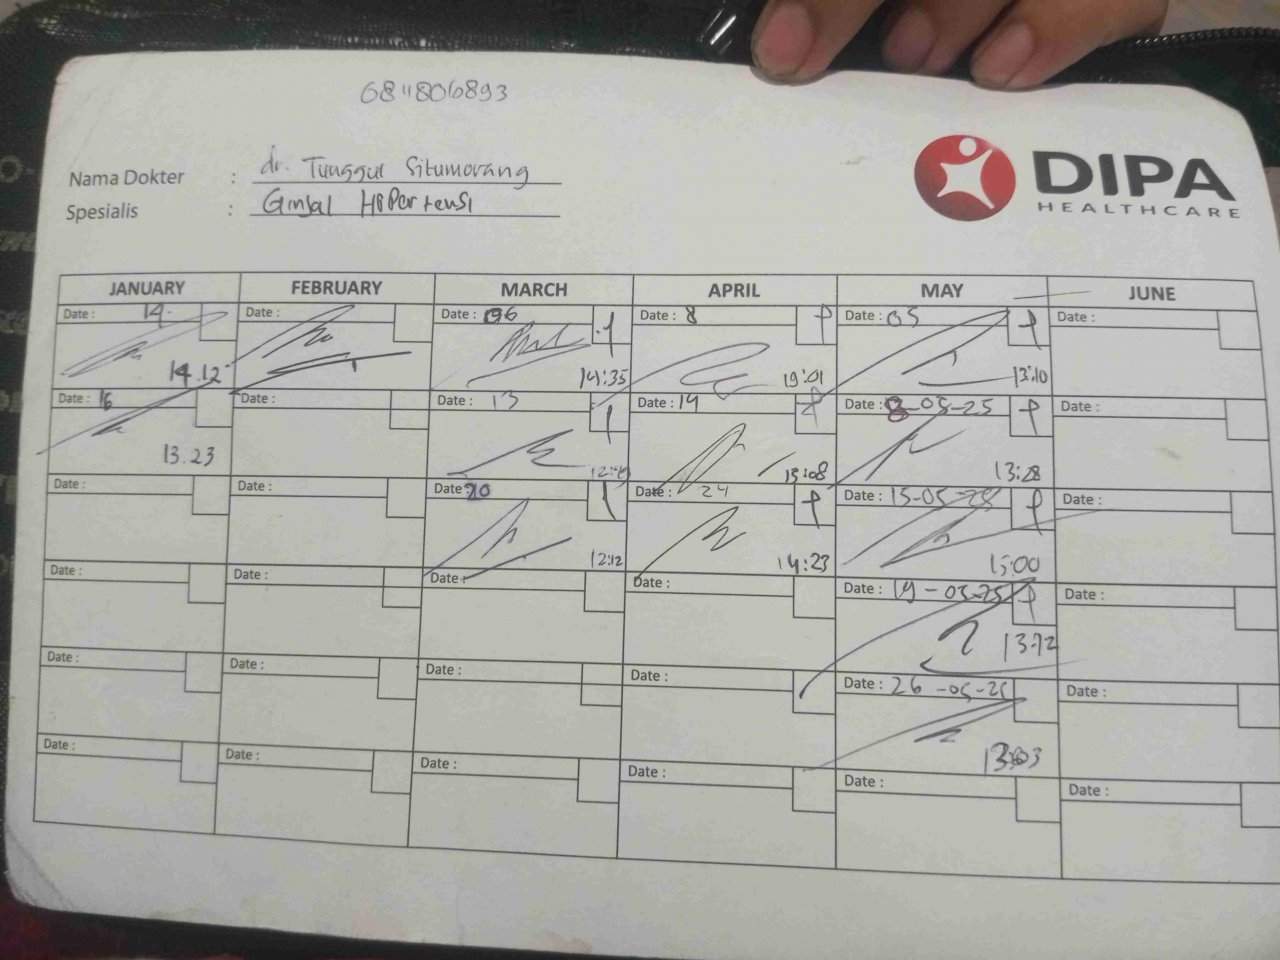 6811806893
DIPA
HEALTHCARE
Nama Dokter : dr. Tunggul Situmorang
Spesialis : Ginjal HiPertensi
JANUARY FEBRUARY MARCH APRIL MAY JUNE
Date : 14 Date : Date : 06 Date : 8 Date : 05 Date :
14.12 14:35 19:01 13:10
Date : 16 Date : Date : 13 Date : 14 Date : 8-05-25 Date :
13.23 15:08 13:28
Date : Date : Date : 20 Date : 24 Date : 15-05-25 Date :
12:12 14:23 15:00
Date : Date : Date : Date : Date : 19-05-25 Date :
13:12
Date : Date : Date : Date : Date : 26-05-25 Date :
Date : Date : Date : Date : Date : Date :